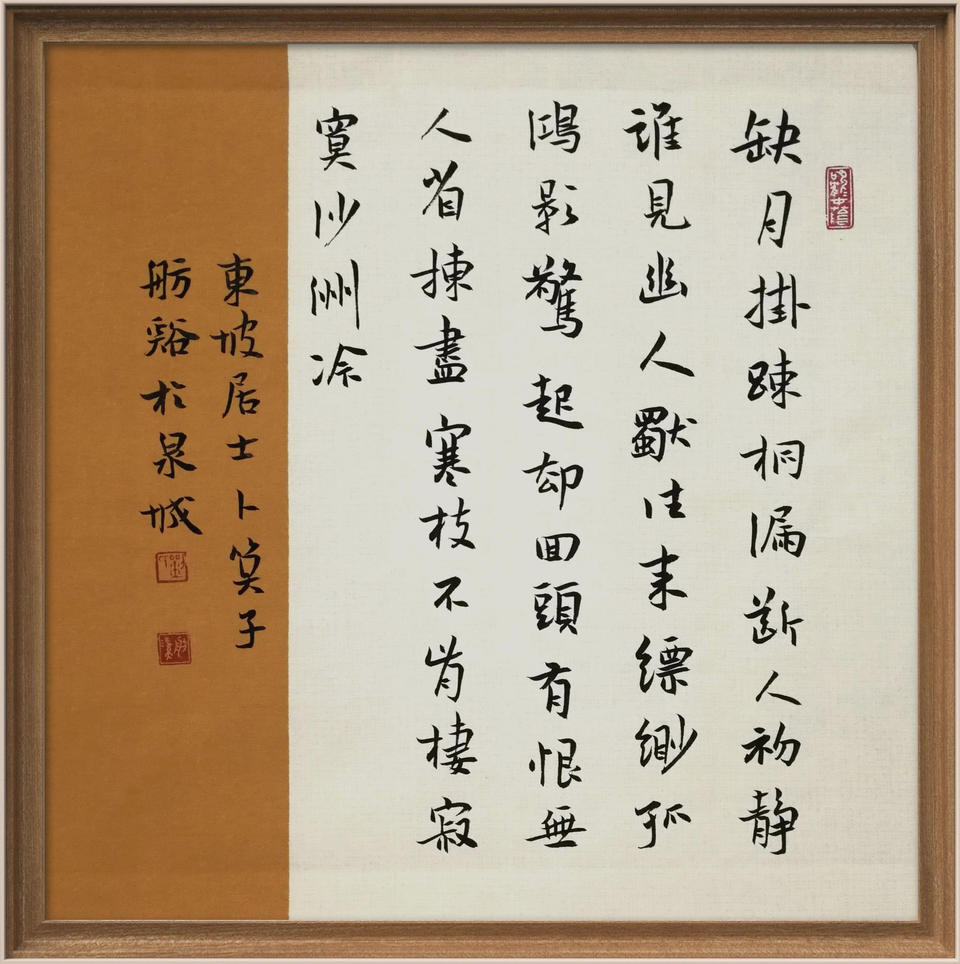 缺月掛踈桐漏断人初静
誰見幽人獨往来縹緲孤
鴻影驚起却囬頭有恨無
人省揀盡寒枝不肯棲寂
寞沙洲冷
東坡居士卜算子
舫谿於泉城